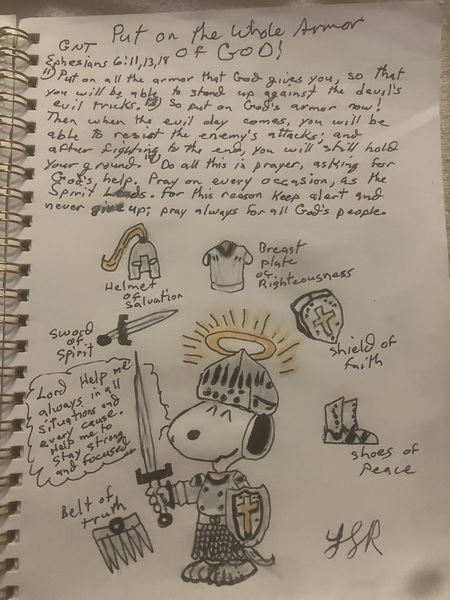 Put on the Whole Armor
GNT OF GOD!
Ephesians 6:11,13,18
11) Put on all the armor that God gives you, so that
you will be able to stand up against the davil's
evil tricks. 13) So put on God's armor now!
Then when the evil day comes, you will be
able to resist the enemy's attacks; and
after fighting to the end, you will still hold
your ground. 18) Do all this in prayer, asking for
God's help. Pray on every occasion, as the
Spirit Leads. For this reason keep alert and
never give up; pray always for all God's people.
Helmet
of
Salvation
Breast
plate
of
Righteousness
Sword
of
Spirit
shield of
faith
Lord Help me
always in all
situations and
every cause.
Help me to
stay strong
and focused
shoes of
Peace
Belt of
truth